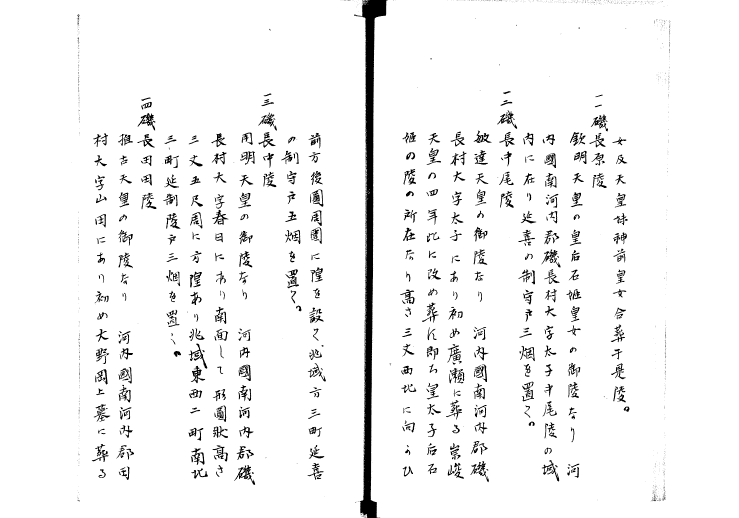 女及天皇妹神前皇女合葬于是陵。
一一磯長原陵
欽明天皇の皇后石姫皇女の御陵なり 河
内國南河内郡磯長村大字太子中尾陵の域
内に在り延喜の制守戸三烟を置く。
一二磯長中尾陵
敏達天皇の御陵なり 河内國南河内郡磯
長村大字太子にあり初め廣瀬に葬る崇峻
天皇の四年此に改め葬る即ち皇太子后石
姫の陵の所在なり高さ三丈西北に向かひ
前方後圓周圍に隍を設く兆域方三町延喜
の制守戸五烟を置く。
一三磯長中陵
用明天皇の御陵なり 河内國南河内郡磯
長村大字春日にあり南面して形圓状高さ
三丈五尺周に方隍あり兆域東西二町南北
三町延制陵戸三烟を置く。
一四磯長田陵
推古天皇の御陵なり 河内國南河内郡山田
村大字山田にあり初め大野岡上墓に葬る